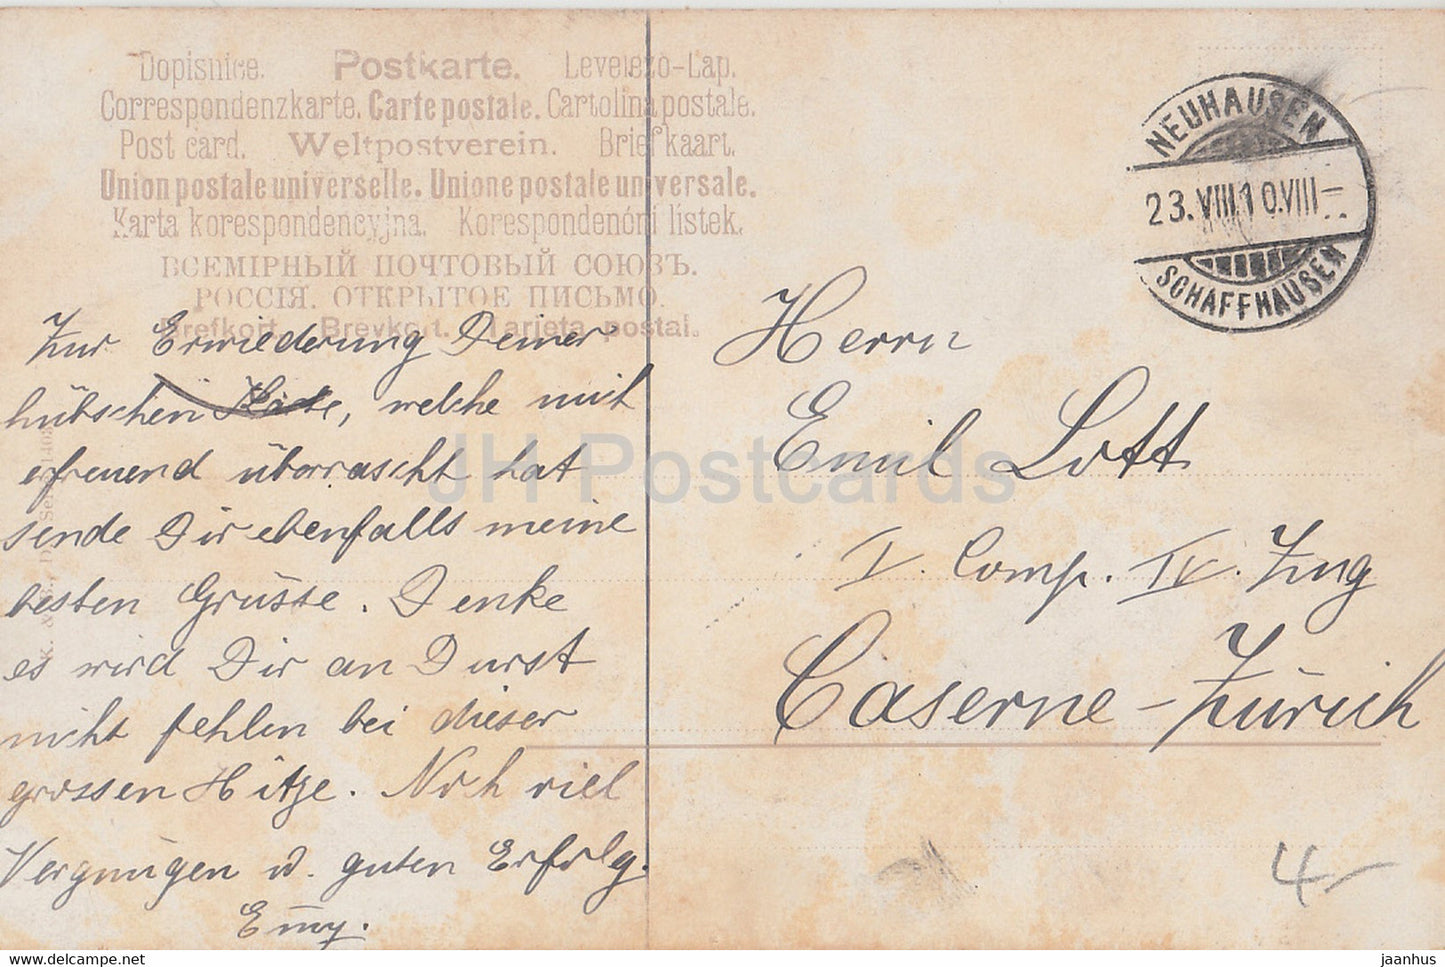 Dopisnice. Postkarte. Levelezö-Lap.
Correspondenzkarte. Carte postale. Cartolina postale.
Post card. Weltpostverein. Briefkaart.
Union postale universelle. Unione postale universale.
Karta korespondencyjna. Korespondenční lístek.
ВСЕМІРНЫЙ ПОЧТОВЫЙ СОЮЗЪ.
РОССІЯ. ОТКРЫТОЕ ПИСЬМО.
Brefkort. Brevkort. Tarjeta postal.
NEUHAUSEN
23.VIII.10.VIII-
SCHAFFHAUSEN
Zur Erwiederung Deiner
hübschen Karte, welche mich
erfreuend überrascht hat
sende Dir ebenfalls meine
besten Grüsse. Denke
es wird Dir an Durst
nicht fehlen bei dieser
grossen Hitze. Noch viel
Vergnügen u. guten Erfolg.
Emy.
Herrn
Emil Lott
V. Comp. IV. Zug
Caserne-Zürich
4-
JH Postcards
jaanhus.delcampe.net
jaanhus